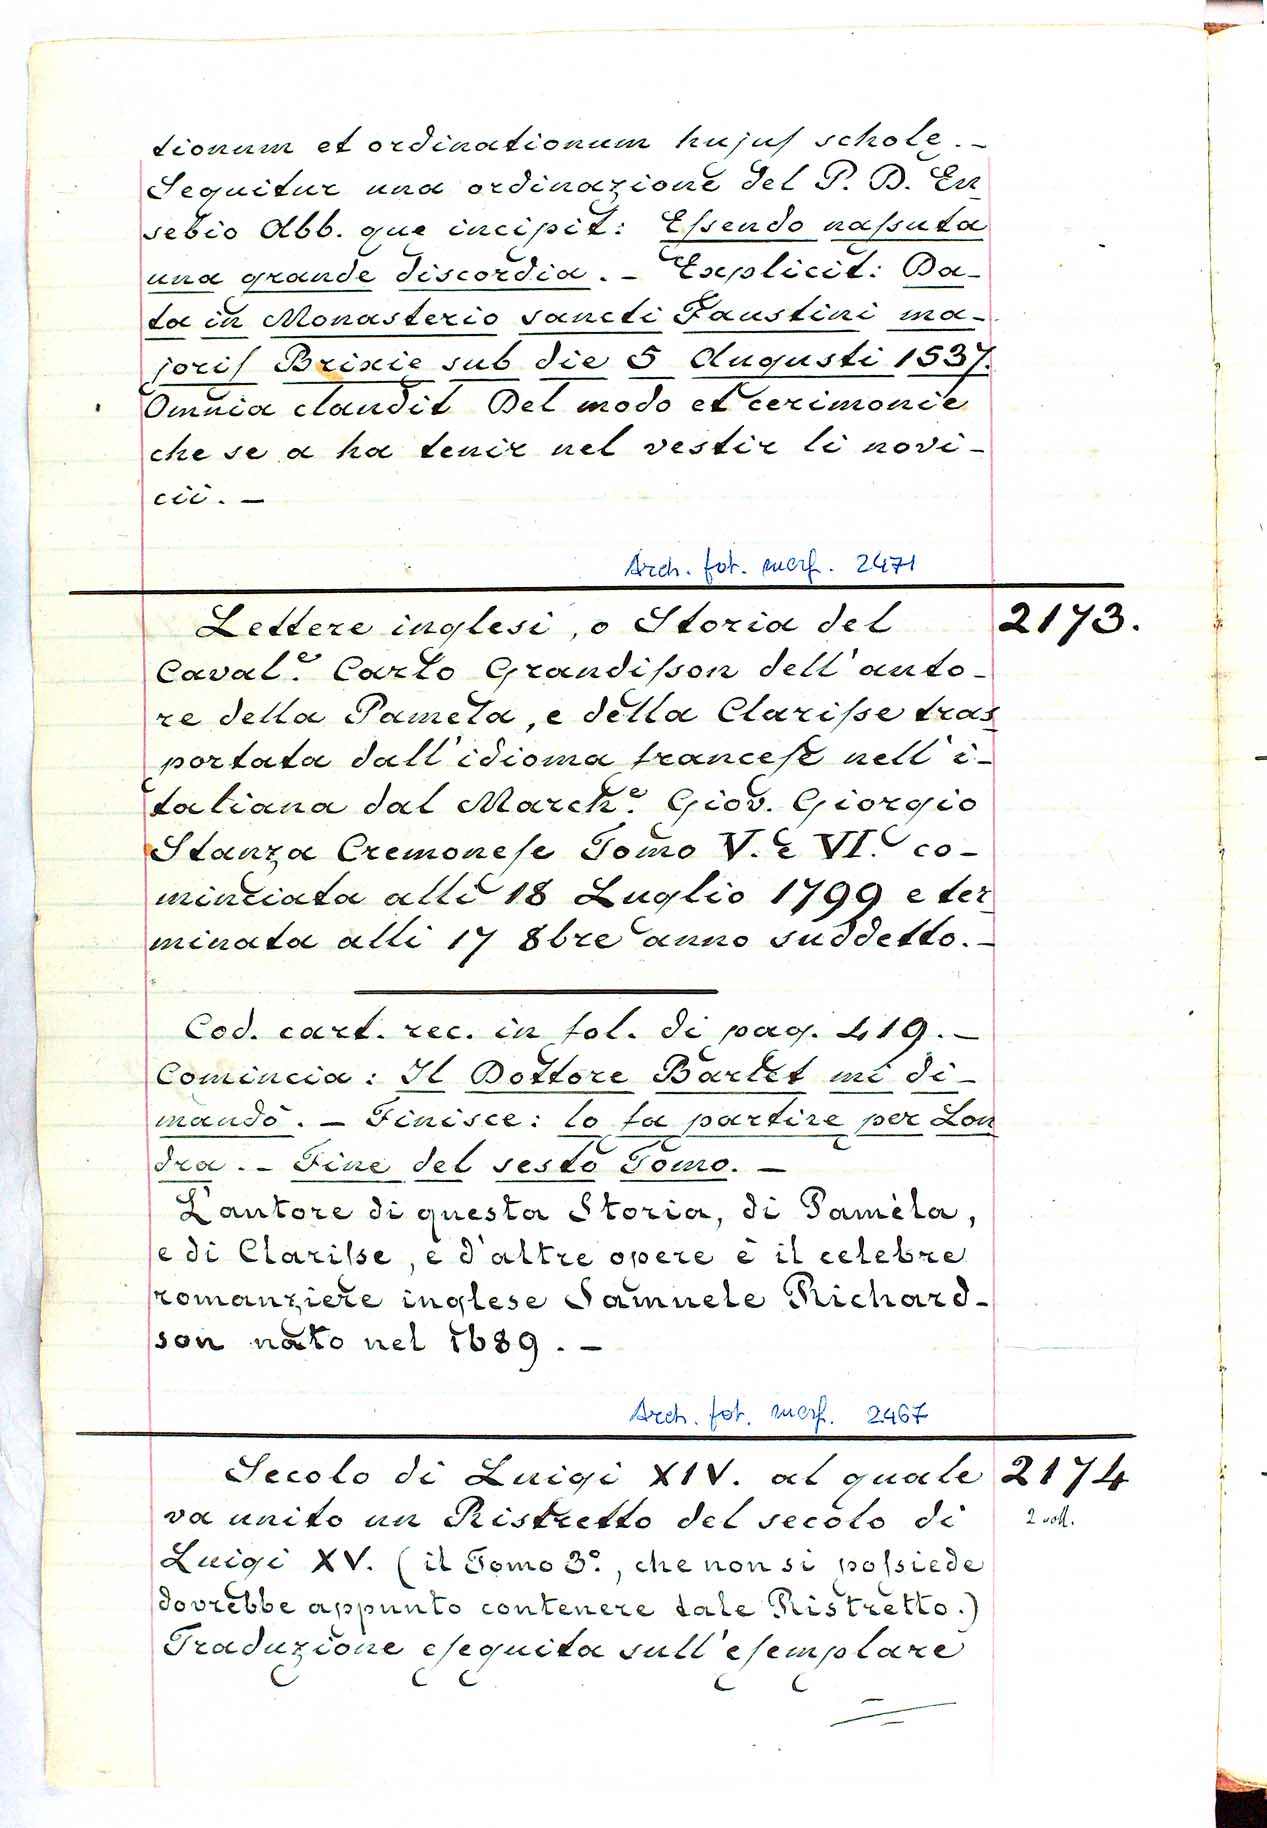 tionum et ordinationum hujuſ schole. –
Sequitur una ordinazione del P. D. Eu
sebio Abb. que incipit: Eſsendo naſsuta
una grande discordia. – Explicit: Da-
ta in Monasterio sancti Faustini ma-
joriſ Brixie sub die 5 Augusti 1537.
Omnia claudit Del modo et cerimonie
che se a ha tenir nel vestir li novi-
cii. –
Arch. fot. merf. 2471
Lettere inglesi, o Storia del 2173.
Caval.e Carlo Grandiſson dell'auto-
re della Pamela, e della Clariſse tras
portata dall'idioma franceſe nell'i-
taliana dal March.e Giov. Giorgio
Stanza Cremoneſe Tomo V. e VI. co-
minciata alli 18 Luglio 1799 e ter
minata alli 17 8bre anno suddetto. –
Cod. cart. rec. in fol. di pag. 419. –
Comincia: Il Dottore Bartlet mi di-
mandò. – Finisce: lo fa partire per Lon
dra. – Fine del sesto Tomo. –
L'autore di questa Storia, di Pamèla,
e di Clariſse, e d'altre opere è il celebre
romanziere inglese Samuele Richard-
son nato nel 1689. –
Arch. fot. merf. 2467
Secolo di Luigi XIV. al quale 2174
va unito un Ristretto del secolo di 2 voll.
Luigi XV. (il Tomo 3º, che non si poſsiede
dovrebbe appunto contenere tale Ristretto.)
Traduzione eſeguita sull'eſemplare